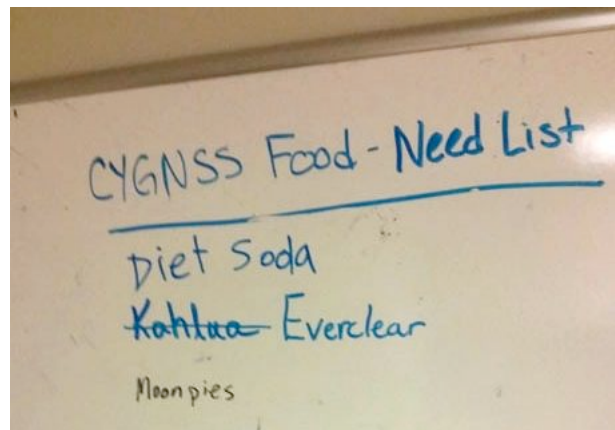 CYGNSS Food - Need List
Diet Soda
Kahlua Everclear
Moonpies